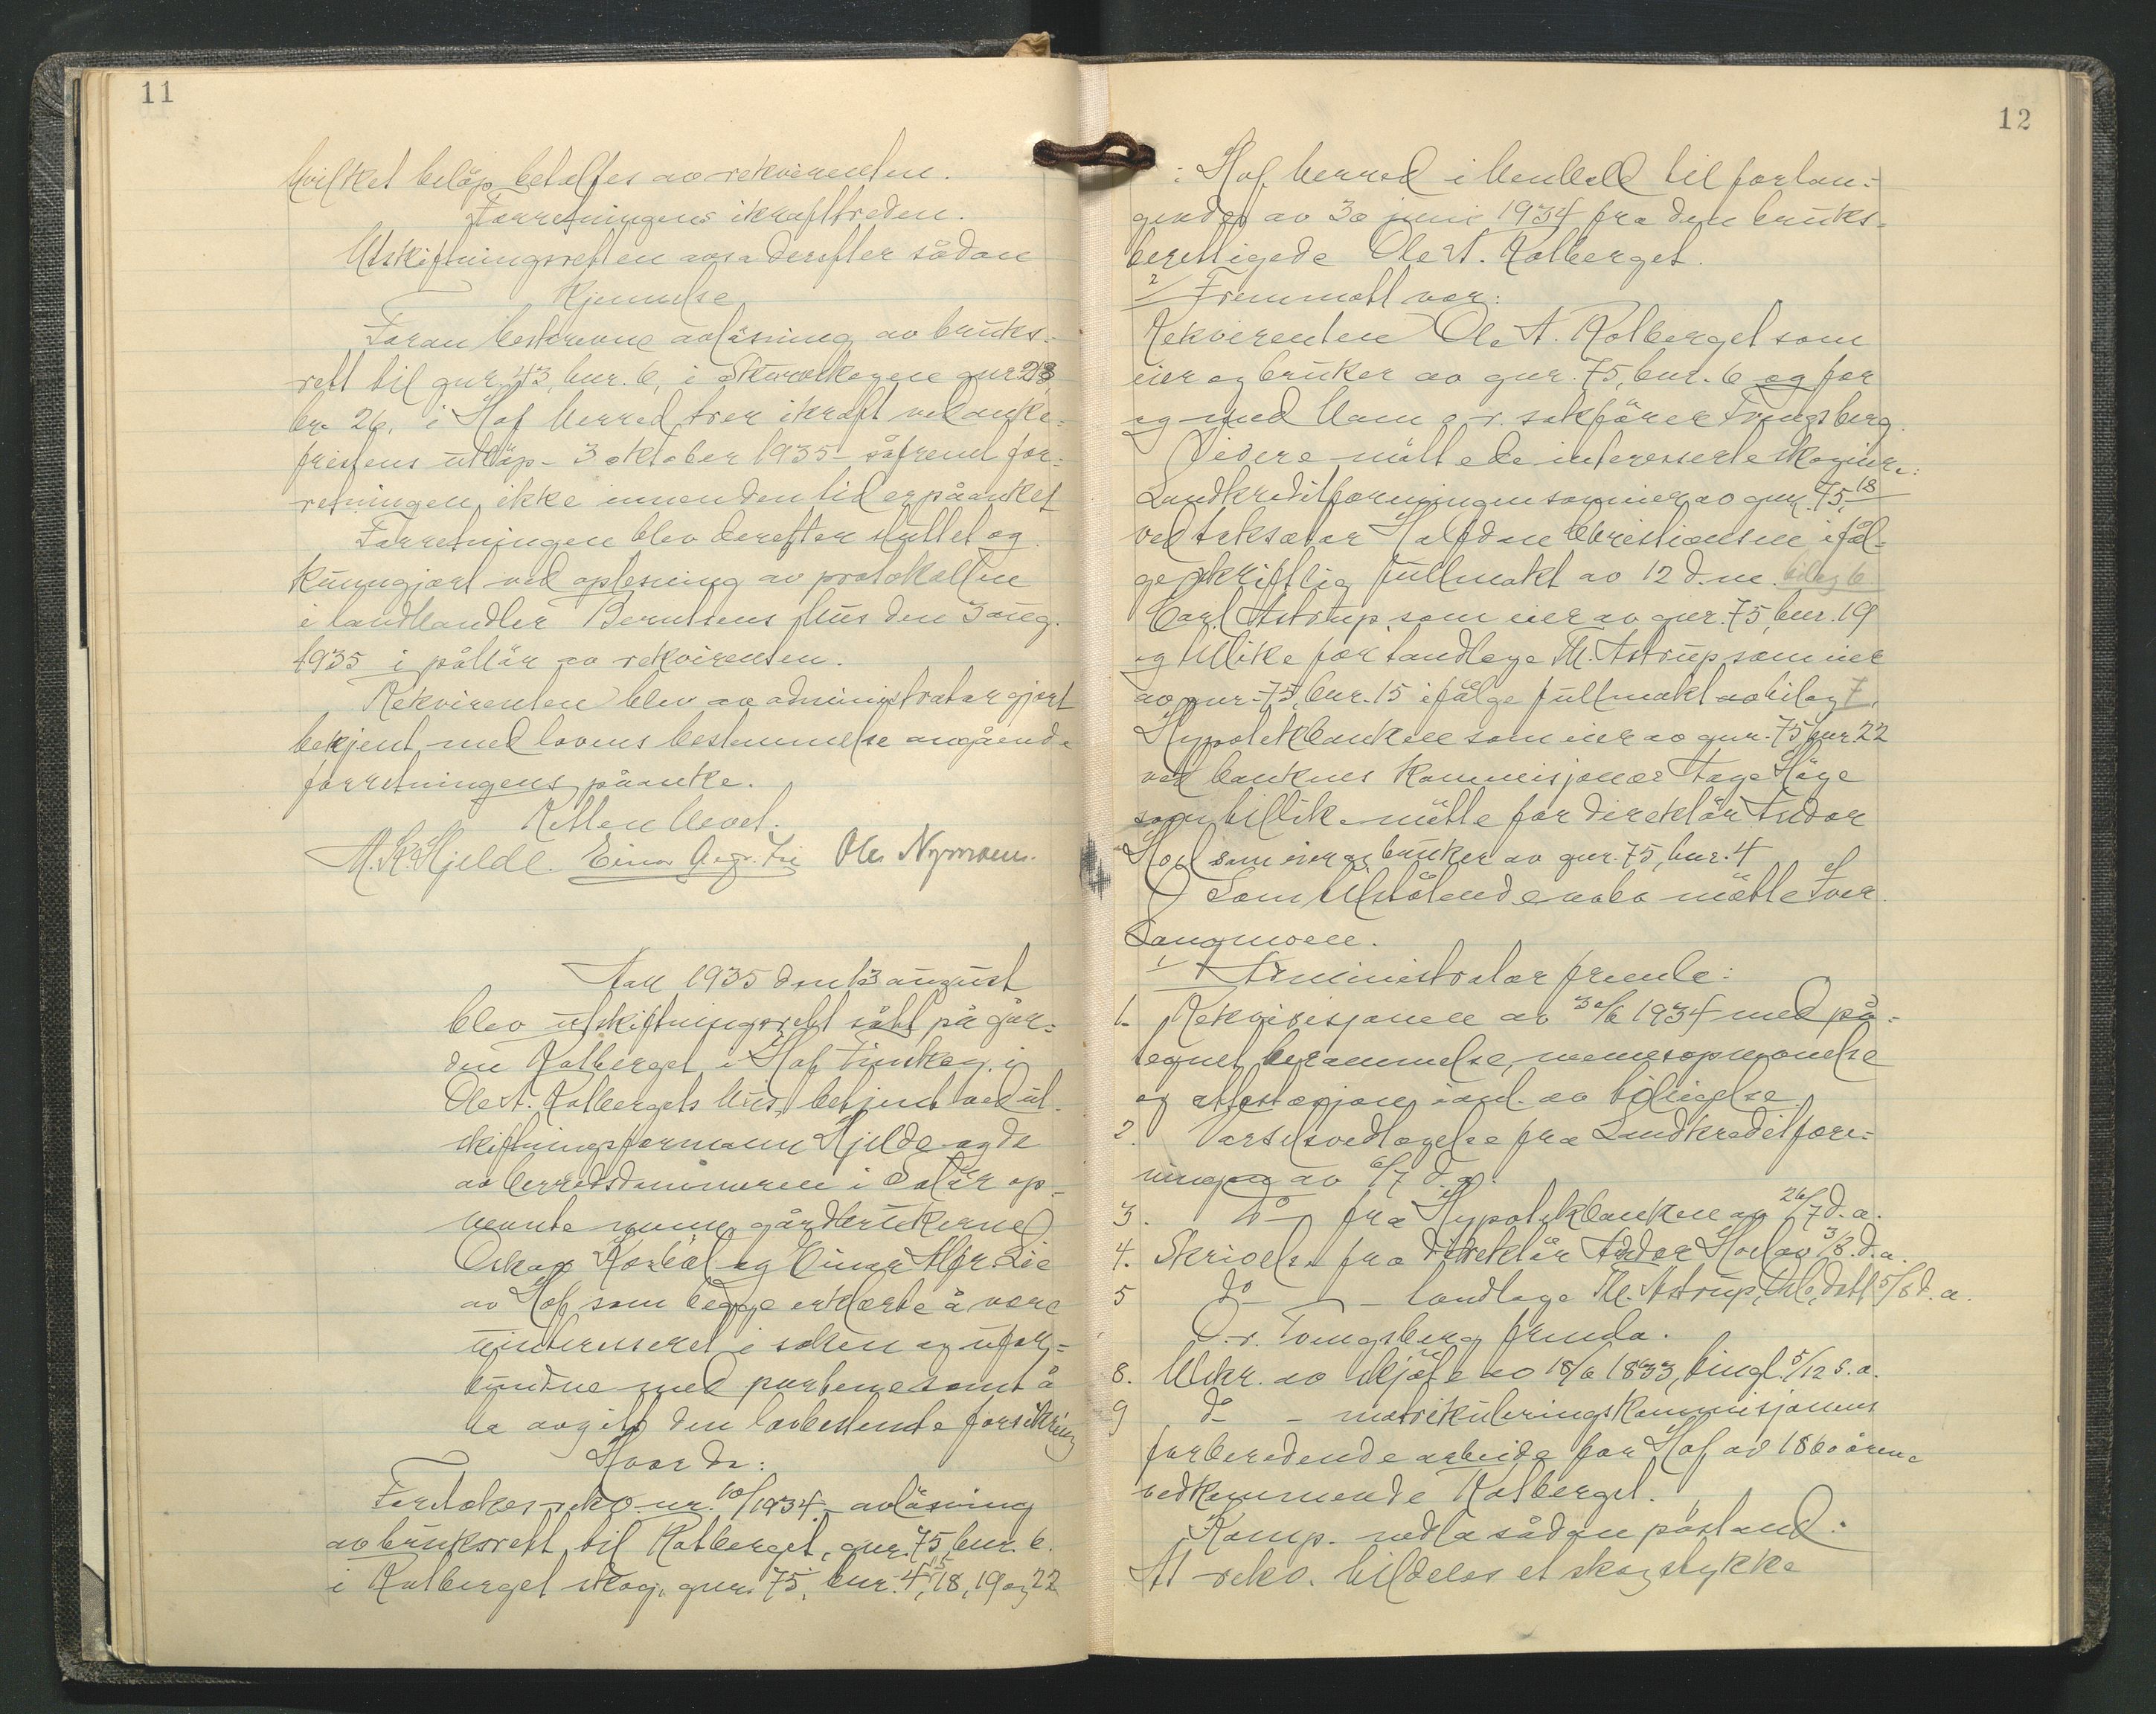 11
hvilket beløp betaltes av rekvirenten.
Forretningens ikrafttreden.
Utskiftningsretten avsa derefter sådan
Kjennelse
Foran beskrevne avløsning av bruks-
rett til gnr. 43, bnr. 6, i skogen gnr. 28,
br. 26, i Hof herred trer ikraft ved anke-
fristens utløp - 3 oktober 1935 - såfremt for-
retningen ikke innen den tid er påanket
Forretningen blev derefter sluttet og
kunngjort ved oplesning av protokollen
i landhandler Berntsens hus den 3 aug.
1935 i påhør av rekvirenten.
Rekvirenten blev av administrator gjort
bekjent med lovens bestemmelse angående
forretningens påanke.
Retten hevet.
M. K. Hjelde. Einar Agr. Lie Ole Nymoen.
Aar 1935 den 13 august
blev utskiftningsrett satt på går-
den Kolberget i Hof Finskog i
Ole A. Kolbergets hus, betjent ved ut-
skiftningsformann Hjelde og de
av herredsdommeren i Solør op-
nevnte menn gårdbrukerne
Oskar og Einar Agr. Lie
av Hof som begge erklærte å være
uinteresseret i saken og ufor-
bundne med partene samt å
ha avgitt den lovbestemte forsikring
Hvorda:
Foretokes rekv. nr. 10/1934 - avløsning
av bruksrett til Kolberget, gnr. 75, bnr. 6.
i Kolberget skog, gnr. 75, bnr. 4, 15, 18, 19 og 22
12
i Hof herred i henhold til forlan-
gende av 30 juni 1934 fra den bruks-
berettigede Ole A. Kolberget.
2/ Fremmøtt var:
Rekvirenten Ole A. Kolberget som
eier og bruker av gnr. 75, bnr. 6 og for
og med ham o.r. sakfører Tongsberg.
Videre møtte de interesserte skogeiere:
Landkreditforeningen som eier av gnr. 75, 18
ved taksator Halfdan Christiansen iføl-
ge skriftlig fullmakt av 12 d.m. bilag 6
Carl Astrup som eier av gnr. 75, bnr. 19
og tillike for tandlege Th. Astrup som eier
av gnr. 75, bnr. 15 ifølge fullmakt av bilag 7,
Hypotekbanken som eier av gnr. 75 bnr 22
ved bankens kommisjonær Aage Høye
som tillike møtte for direktør Andor
Hoel som eier og bruker av gnr. 75, bnr. 4
Som tilstøtende nabo møtte Iver
Langmoen.
1/ Administrator fremla:
1. Rekvisisjonen av 30/6 1934 med på-
tegnet berammelse, mennsopnevnelse
og attestasjon
2. Varselsvedtagelse fra Landkreditfore-
ningen av 6/7 d.a.
3. do - fra Hypotekbanken av 26/7 d.a.
4. Skrivelse fra direktør Andor Hoel av 3/8 d.a.
5 do - - tandlege Th. Astrup, Oslo, datt 5/8 d.a.
O.r. Tongsberg fremla.
8. Utskr. av skjøte av 18/6 1833, tingl. 5/12 s.a.
9 do - matrikuleringskommisjonens
forberedende arbeide for Hof av 1860 årene
vedkommende Kolberget.
Komp. nedla sådan påstand:
At rekv. tildeles et skogstykke